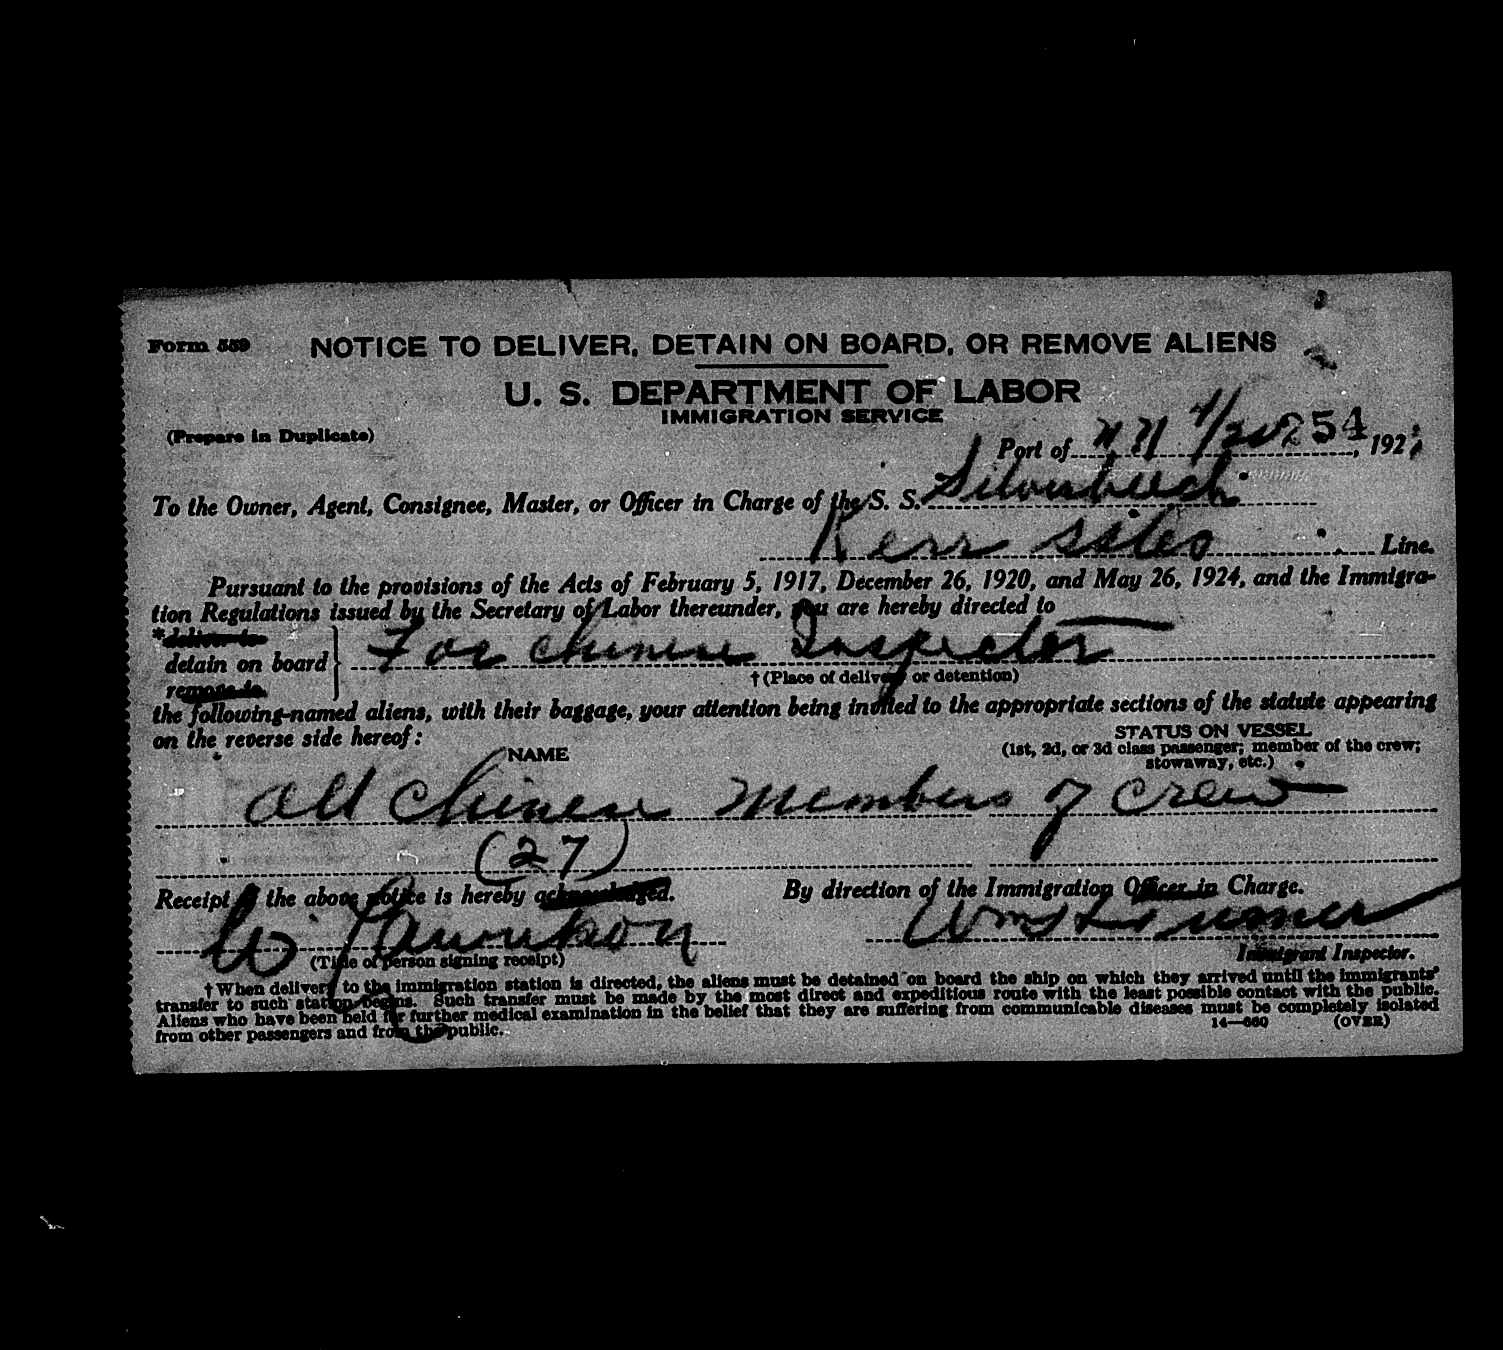 Form 559 NOTICE TO DELIVER, DETAIN ON BOARD, OR REMOVE ALIENS
U. S. DEPARTMENT OF LABOR
IMMIGRATION SERVICE
(Prepare in Duplicate)
Port of N.Y. 254, 192
To the Owner, Agent, Consignee, Master, or Officer in Charge of the S. S. Silverbeech
Kerr Line.
Pursuant to the provisions of the Acts of February 5, 1917, December 26, 1920, and May 26, 1924, and the Immigra-
tion Regulations issued by the Secretary of Labor thereunder, you are hereby directed to
*deliver to
detain on board For Chinese Inspector
remove to
†(Place of delivery or detention)
the following-named aliens, with their baggage, your attention being invited to the appropriate sections of the statute appearing
on the reverse side hereof:
NAME
STATUS ON VESSEL
(1st, 2d, or 3d class passenger; member of the crew;
stowaway, etc.)
All Chinese members of crew
(27)
Receipt of the above notice is hereby acknowledged.
By direction of the Immigration Officer in Charge.
W.
Wm
(Title of person signing receipt)
Immigrant Inspector.
†When delivery to the immigration station is directed, the aliens must be detained on board the ship on which they arrived until the immigrants'
transfer to such station begins. Such transfer must be made by the most direct and expeditious route with the least possible contact with the public.
Aliens who have been held for further medical examination in the belief that they are suffering from communicable diseases must be completely isolated
from other passengers and from the public.
14—660 (OVER)